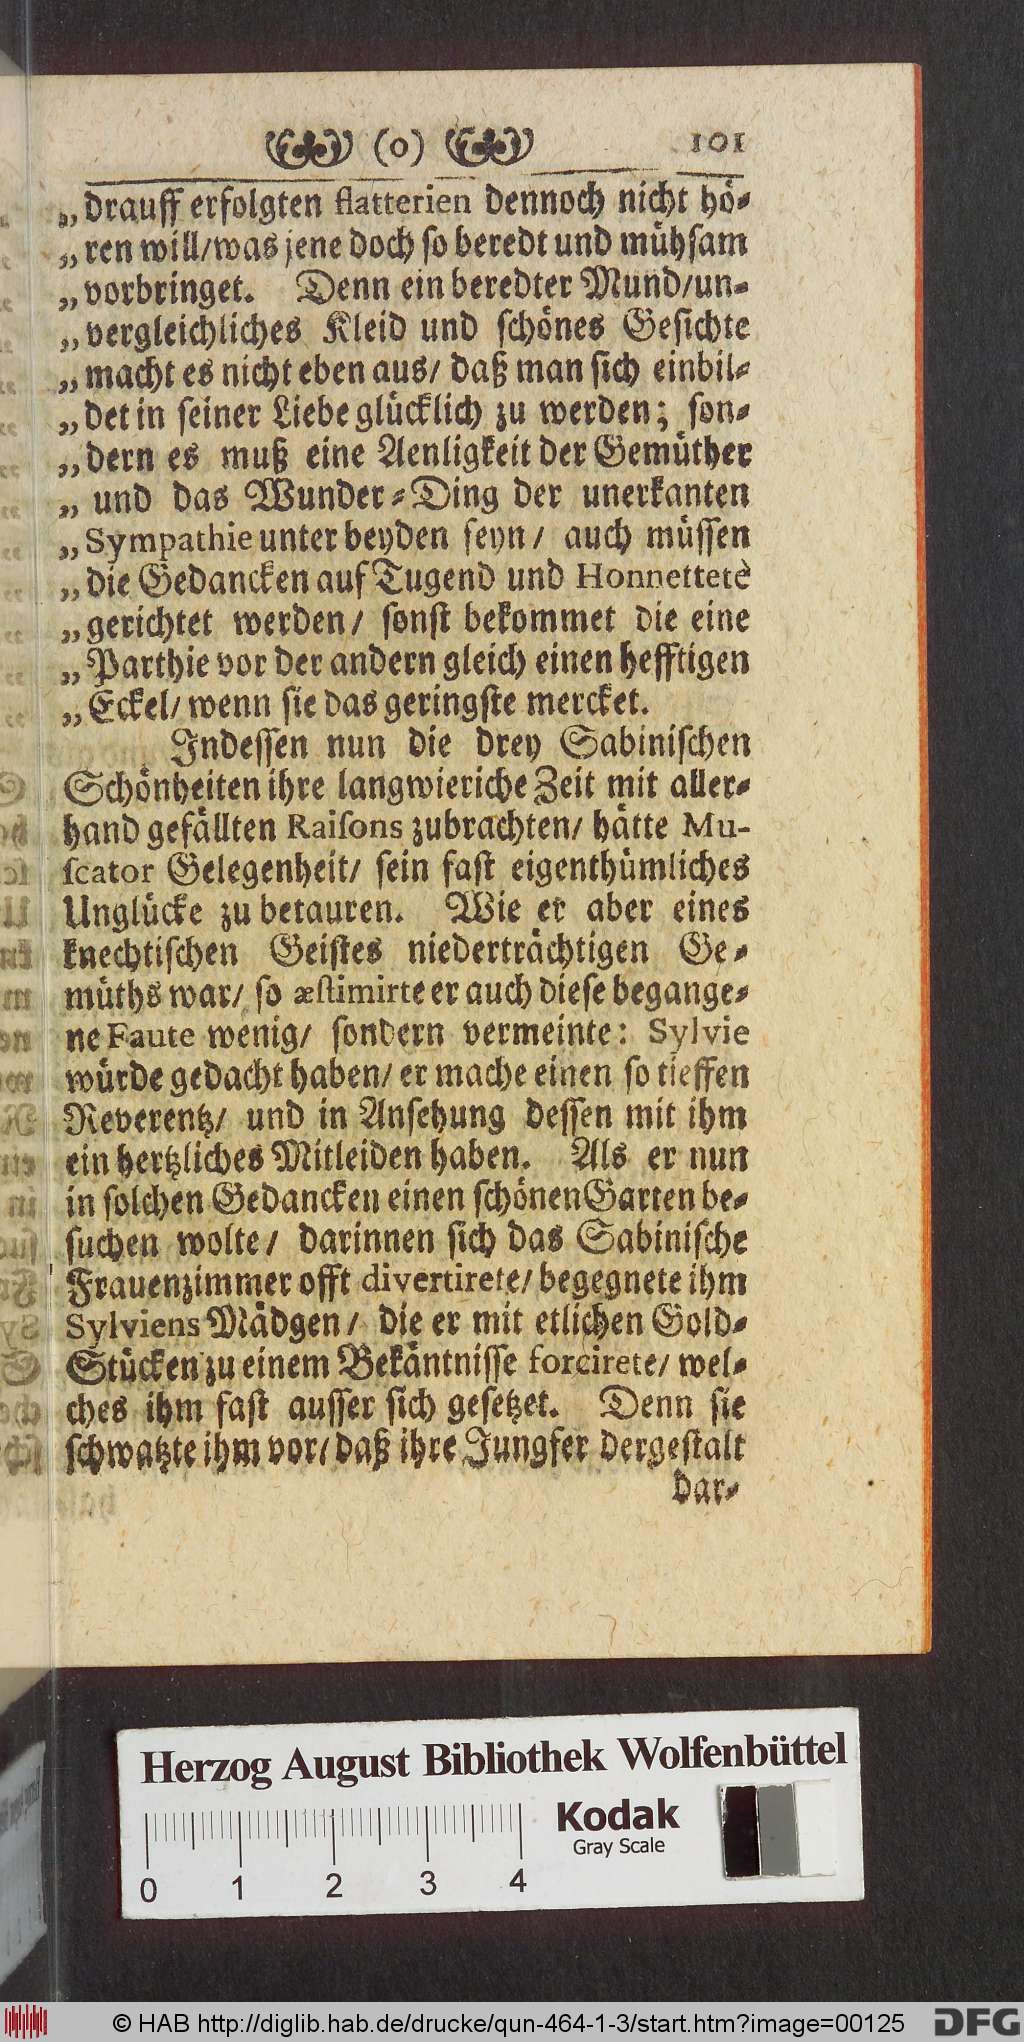 (o) 101
„drauff erfolgten flatterien dennoch nicht hö-
„ren will/was jene doch so beredt und mühsam
„vorbringet. Denn ein beredter Mund/un-
„vergleichliches Kleid und schönes Gesichte
„macht es nicht eben aus/ daß man sich einbil-
„det in seiner Liebe glücklich zu werden; son-
„dern es muß eine Aenligkeit der Gemüther
„und das Wunder-Ding der unerkanten
„Sympathie unter beyden seyn/ auch müssen
„die Gedancken auf Tugend und Honnettetè
„gerichtet werden/ sonst bekommet die eine
„Parthie vor der andern gleich einen hefftigen
„Eckel/ wenn sie das geringste mercket.
Indessen nun die drey Sabinischen
Schönheiten ihre langwieriche Zeit mit aller-
hand gefällten Raisons zubrachten/ hätte Mu-
scator Gelegenheit/ sein fast eigenthümliches
Unglücke zu betauren. Wie er aber eines
knechtischen Geistes niederträchtigen Ge-
müths war/ so æstimirte er auch diese begange-
ne Faute wenig/ sondern vermeinte: Sylvie
würde gedacht haben/ er mache einen so tieffen
Reverentz/ und in Ansehung dessen mit ihm
ein hertzliches Mitleiden haben. Als er nun
in solchen Gedancken einen schönen Garten be-
suchen wolte/ darinnen sich das Sabinische
Frauenzimmer offt divertirete/ begegnete ihm
Sylviens Mädgen/ die er mit etlichen Gold-
Stücken zu einem Bekäntnisse forcirete/ wel-
ches ihm fast ausser sich gesetzet. Denn sie
schwatzte ihm vor/ daß ihre Jungfer dergestalt
dar-
Herzog August Bibliothek Wolfenbüttel
Kodak
Gray Scale
0 1 2 3 4
© HAB http://diglib.hab.de/drucke/qun-464-1-3/start.htm?image=00125
DFG